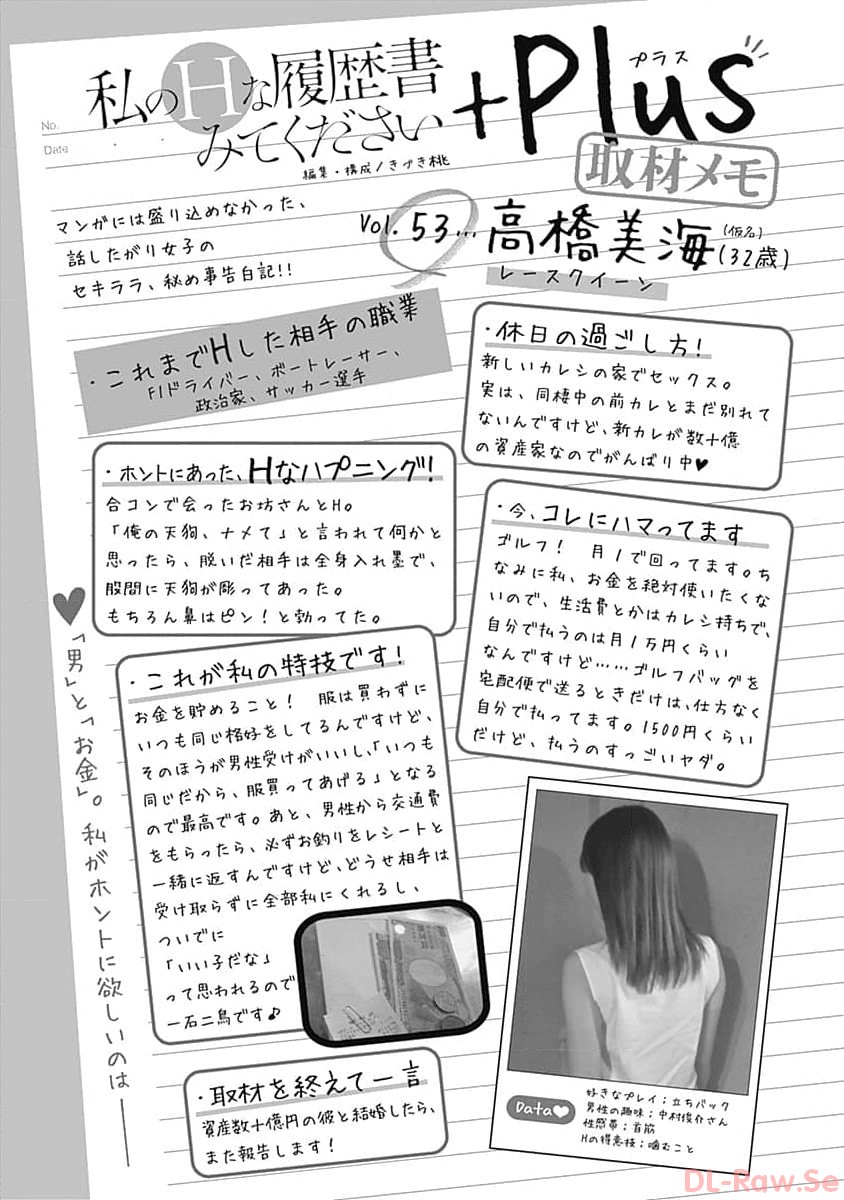 私のHな履歴書
みてください
+Plus
プラス
取材メモ
編集・構成/きづき桃
No.
Date
マンガには盛り込めなかった、
話したがり女子の
セキララ、秘め事告白記!!
Vol.53…高橋美海(仮名)(32歳)
レースクイーン
・これまでHした相手の職業
F1ドライバー、ボートレーサー、
政治家、サッカー選手
・休日の過ごし方!
新しいカレシの家でセックス。
実は、同棲中の前カレとまだ別れて
ないんですけど、新カレが数十億
の資産家なのでがんばり中♥
・ホントにあった、Hなハプニング!
合コンで会ったお坊さんとH。
「俺の天狗、ナメて」と言われて何かと
思ったら、脱いだ相手は全身入れ墨で、
股間に天狗が彫ってあった。
もちろん鼻はピン!と勃ってた。
・今、コレにハマってます
ゴルフ! 月1で回ってます。ち
なみに私、お金を絶対使いたくな
いので、生活費とかはカレシ持ちで、
自分で払うのは月1万円くらい
なんですけど……ゴルフバッグを
宅配便で送るときだけは、仕方なく
自分で払ってます。1500円くらい
だけど、払うのすっごいヤダ。
・これが私の特技です!
お金を貯めること! 服は買わずに
いつも同じ格好をしてるんですけど、
そのほうが男性受けがいいし、「いつも
同じだから、服買ってあげる」となる
ので最高です。あと、男性から交通費
をもらったら、必ずお釣りをレシートと
一緒に返すんですけど、どうせ相手は
受け取らずに全部私にくれるし、
ついでに
「いい子だな」
って思われるので
一石二鳥です♪
♥「男」と「お金」。私がホントに欲しいのは――
・取材を終えて一言
資産数十億円の彼と結婚したら、
また報告します!
Data♥
好きなプレイ;立ちバック
男性の趣味;中村俊介さん
性感帯;首筋
Hの得意技;噛むこと
DL-Raw.Se